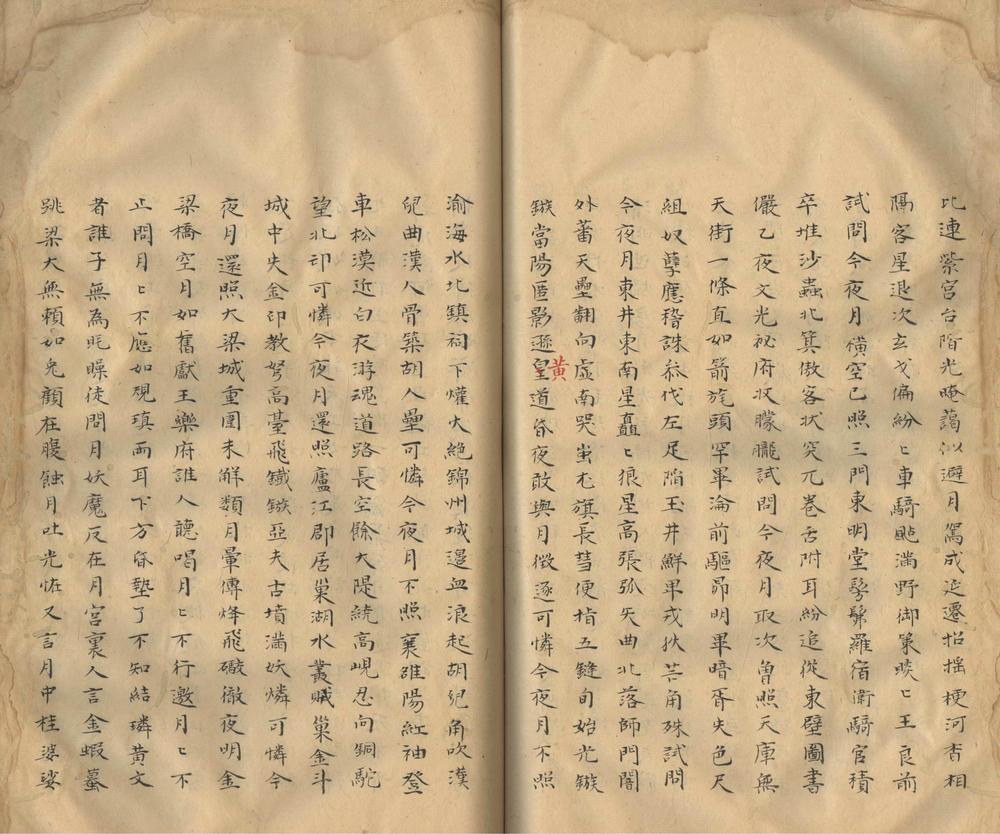 比連紫宮台階光晻藹似避月駕成迁遷招搖梗河杳相
隔客星退次玄戈偏紛〻車騎颭滿野御策晱〻王良前
試問今夜月橫空已照三門東明堂髣髴羅宿衛騎官積
卒堆沙蟲北箕傲客狀突兀卷舌附耳紛追從東壁圖書
儼乙夜文光祕府収朦朧試問今夜月取次曾照天庫無
天街一條直如箭旄頭罕畢淪前驅昴明畢暗胥失色尺
組奴孽應稽誅叅伐左足陷玉井鮮卑戎狄芒角殊試問
今夜月東井東南星矗〻狼星高張弧矢曲北落師門闇
外蕃天壘翻向虛南哭蚩尤旗長彗便指五鏠旬始光鏃
鏃當陽匿影遜皇黃道昏夜敢與月徵逐可憐今夜月不照
渝海水北鎮祠下爟火絶錦州城邊血浪起胡兒角吹漢
兒曲漢人骨築胡人壘可憐今夜月不照襄雒陽紅袖登
車松漠近白衣游魂道路長空餘大隄繞高峴忍向銅駝
望北邙可憐今夜月還照廬江郡居巢湖水叢賊巢金斗
城中失金印教弩高臺飛鐵鏃亞夫古墳滿妖燐可憐今
夜月還照大梁城重圍未解類月暈傳烽飛礮徹夜明金
梁橋空月如舊獻王樂府誰人聽喝月〻不行邀月〻不
止問月〻不應如硯瑱兩耳下方昏墊了不知結璘黃文
者誰子無為毦矂徒問月妖魔反在月宮裏人言金蝦蟇
跳梁大無賴如兔顧在腹蝕月吐光恠又言月中桂婆娑